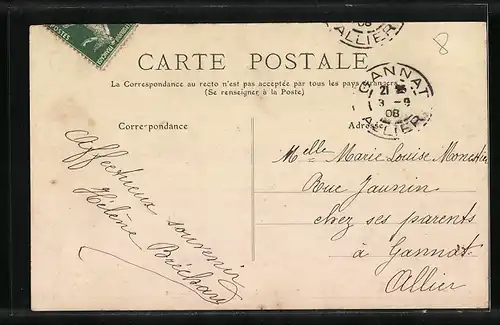 8
ALLIER
08
CARTE POSTALE
La Correspondance au recto n'est pas acceptée par tous les pays étrangers
(Se renseigner à la Poste)
GANNAT
21
3 -9
08
ALLIER
Corre-pondance
Adresse
Melle Marie Louise
Rue Jaunin
chez ses parents
à Gannat
Allier
Affectueux souvenir
Hélène